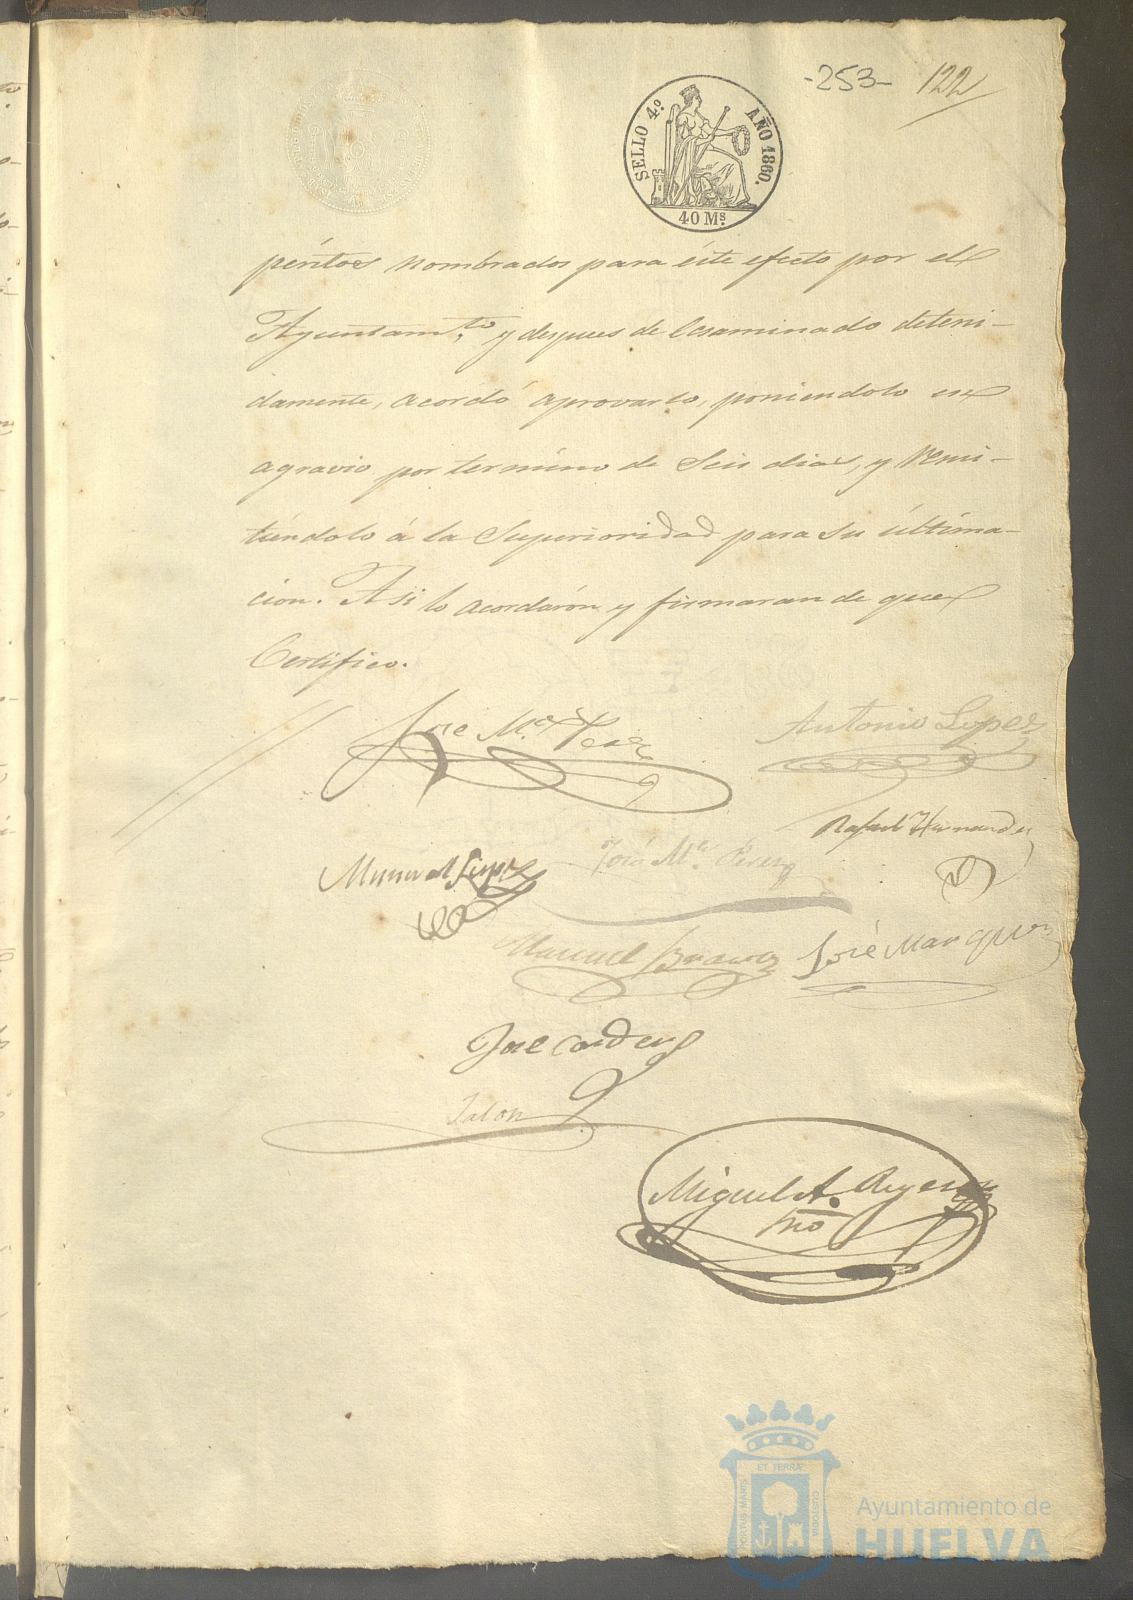 -253- 122
SELLO 4.º AÑO 1860.
40 Ms.
péritos nombrados para éste efecto por el
Ayuntam.to y despues de Ecsaminado deteni-
damente, acordó aprovarlo, poniendolo en
agravio por término de Seis dias, y remi-
tiéndolo á la Superioridad para su última-
cion. Asi lo acordarón y firmaran de que
Certifico.
Jose M.a Perez Antonio Lopez
Rafael Hernandez
Manuel Lopez José M.a Perez
Manuel Bravo José Marquez
Jose Cordero
Jalon
Miguel A. Reyes
Srio
ET TERRÆ
PORTUS MARIS
CUSTODIA
Ayuntamiento de
HUELVA